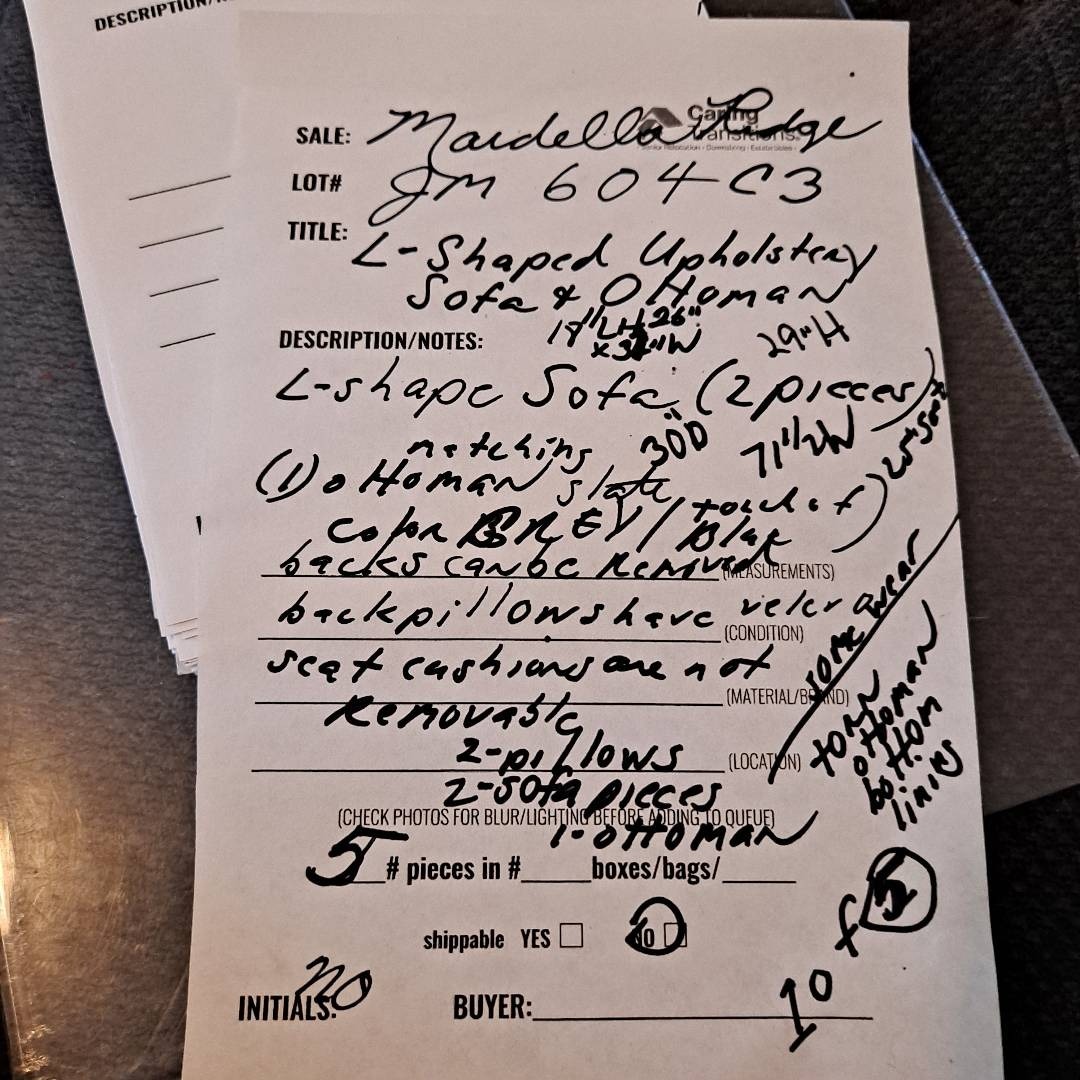 DESCRIPTION/
Caring
Transitions.
Senior Relocation • Downsizing • Estate Sales
SALE: Mardella Ridge
LOT# JM 604 C3
TITLE: L-Shaped Upholstery
Sofa & Ottoman
DESCRIPTION/NOTES: 26"
29"H
L-shape Sofa (2 pieces)
matching 30"D 71 1/2W
(1) ottoman slate
color GREY/
backs can be Removed (MEASUREMENTS)
back pillows have velcr (CONDITION)
seat cushions are not (MATERIAL/BRAND)
Removable
2-pillows (LOCATION)
2-sofa pieces
(CHECK PHOTOS FOR BLUR/LIGHTING BEFORE ADDING TO QUEUE)
1-ottoman
5 # pieces in #____boxes/bags/____
some wear
torn
ottoman
bottom
shippable YES NO
1 of 5
INITIALS: no BUYER: